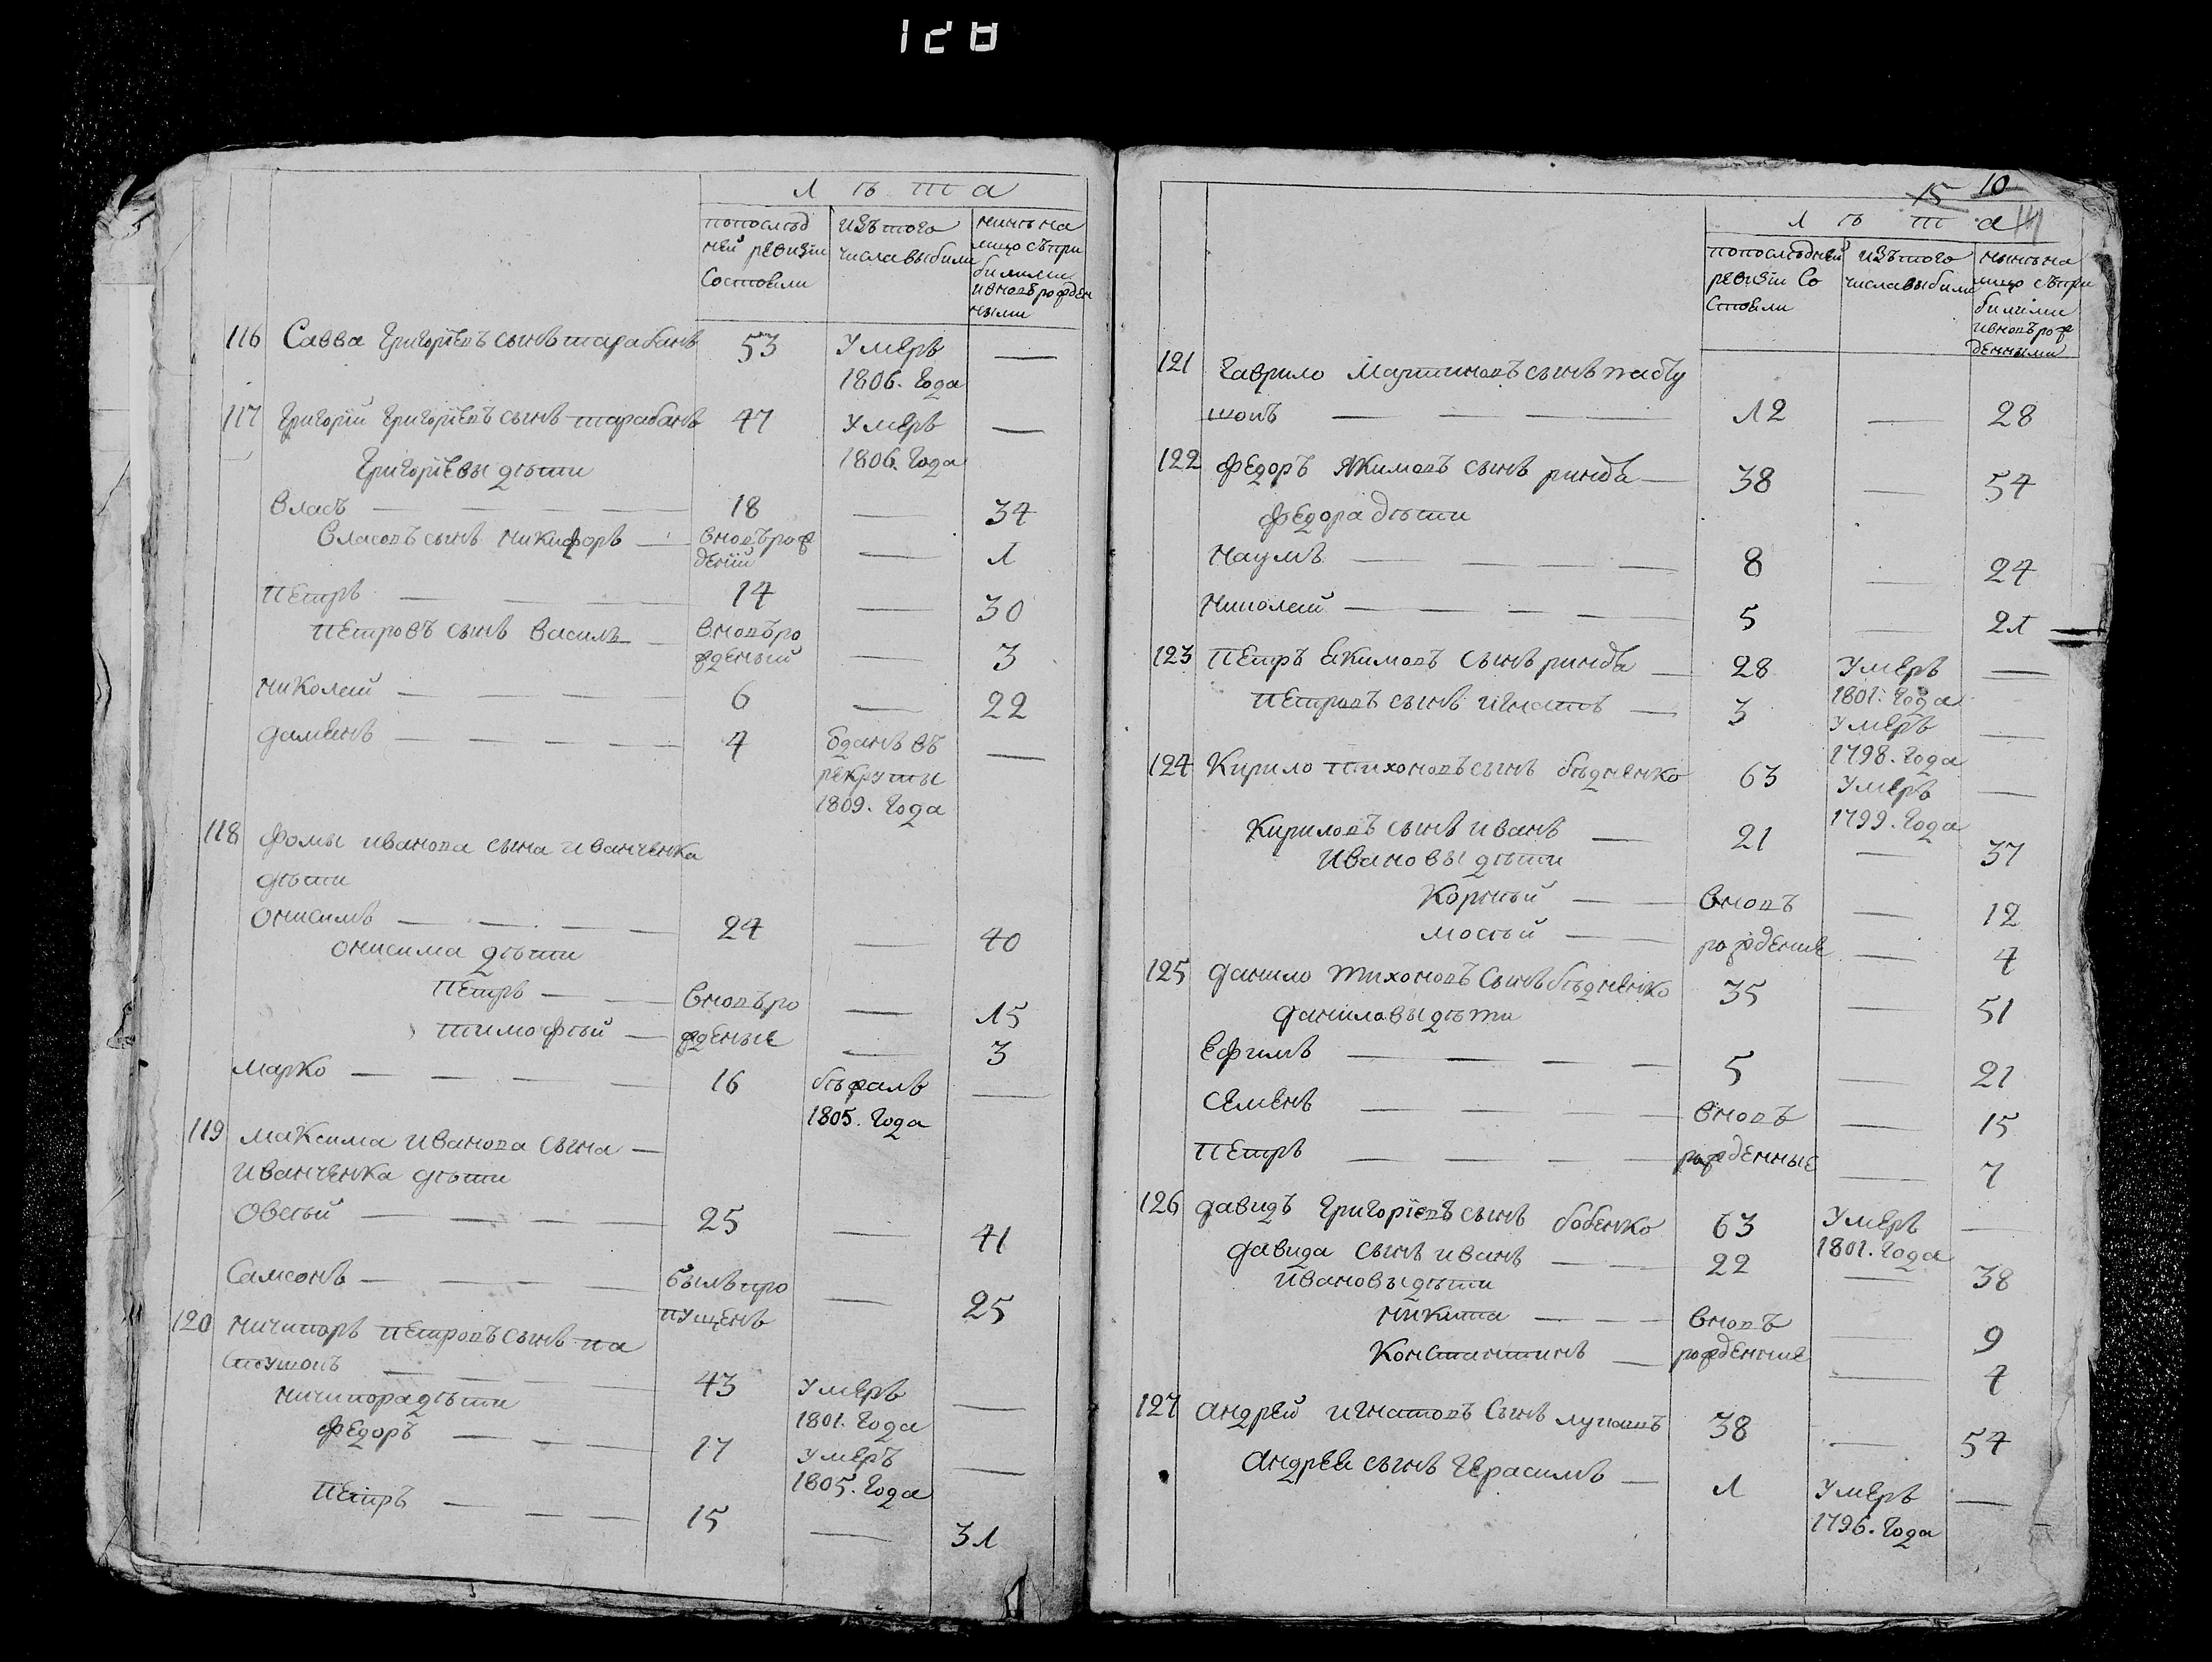 128
лѣта
попослѣд
ней ревизіи
Состояли
изъ того
числа выбили
нынѣ на
лицо съ при
билими
и вновь рожден
ными
116 Савва Григоріевъ сынъ тарабанъ 53 Умеръ —
1806. Года
117 Григорій Григоріевъ сынъ тарабанъ 47 Умеръ —
Григоріевы дѣти 1806. Года
Власъ — — — — 18 — 34
Власовъ сынъ никифоръ — вновь рож — 1
деній
Петръ — — — 14 — 30
Петровъ сынъ василь — вновь ро — 3
жденый
николай — — — — 6 — 22
даменъ — — — — 4 оданъ въ —
рекруты
1809. Года
118 фомы иванова сына иванченка
дѣти
онисимъ — — — — 24 — 40
онисима дѣти
Петръ — — вновь ро — 15
тимофѣй — жденые — 3
марко — — — — 16 бѣжалъ —
1805. Года
119 максима иванова сына —
иванченка дѣти
овсѣй — — — — 25 — 41
Самсонъ — — — — былъ про — 25
пущенъ
120 ничипоръ петровъ сынъ па
стушокъ — — — 43 Умеръ —
ничипора дѣти 1801. Года
федоръ — — — 17 Умеръ —
1805. Года
Петръ — — — 15 — 31
15 10
14
лѣта
попослѣдней
ревизіи Со
Стояли
изъ того
числа выбили
нынѣ на
лицо съ при
билими
и вновь рож
денными
121 гаврило мартиновъ сынъ
— — — 12 — 28
122 федоръ якимовъ сынъ ринда — 38 — 54
федора дѣти
наумъ — — — — 8 — 24
николай — — — — 5 — 21
123 Петръ екимовъ сынъ ринда — 28 Умеръ —
1801. Года
Петровъ сынъ игнатъ — 3 Умеръ —
1798. Года
124 Кирило тихоновъ сынъ бѣдненко 63 Умеръ —
1799. Года
Кириловъ сынъ иванъ — 21 — 37
Ивановы дѣти
Корнѣй — — вновь — 12
мосѣй — — рожденые — 4
125 данило тихоновъ сынъ бѣдненко 35 — 51
даниловы дѣти
Ефимъ — — — — 5 — 21
Семенъ — — — — вновь — 15
Петръ — — — — рожденные — 7
126 давидъ григоріевъ сынъ бобенко 63 Умеръ —
1801. Года
давида сынъ иванъ — — 22 — 38
ивановы дѣти
никита — — — вновь — 9
Константинъ — рожденные — 4
127 андрей игнатовъ сынъ 38 — 54
андрея сынъ герасимъ — 1 Умеръ —
1796. Года